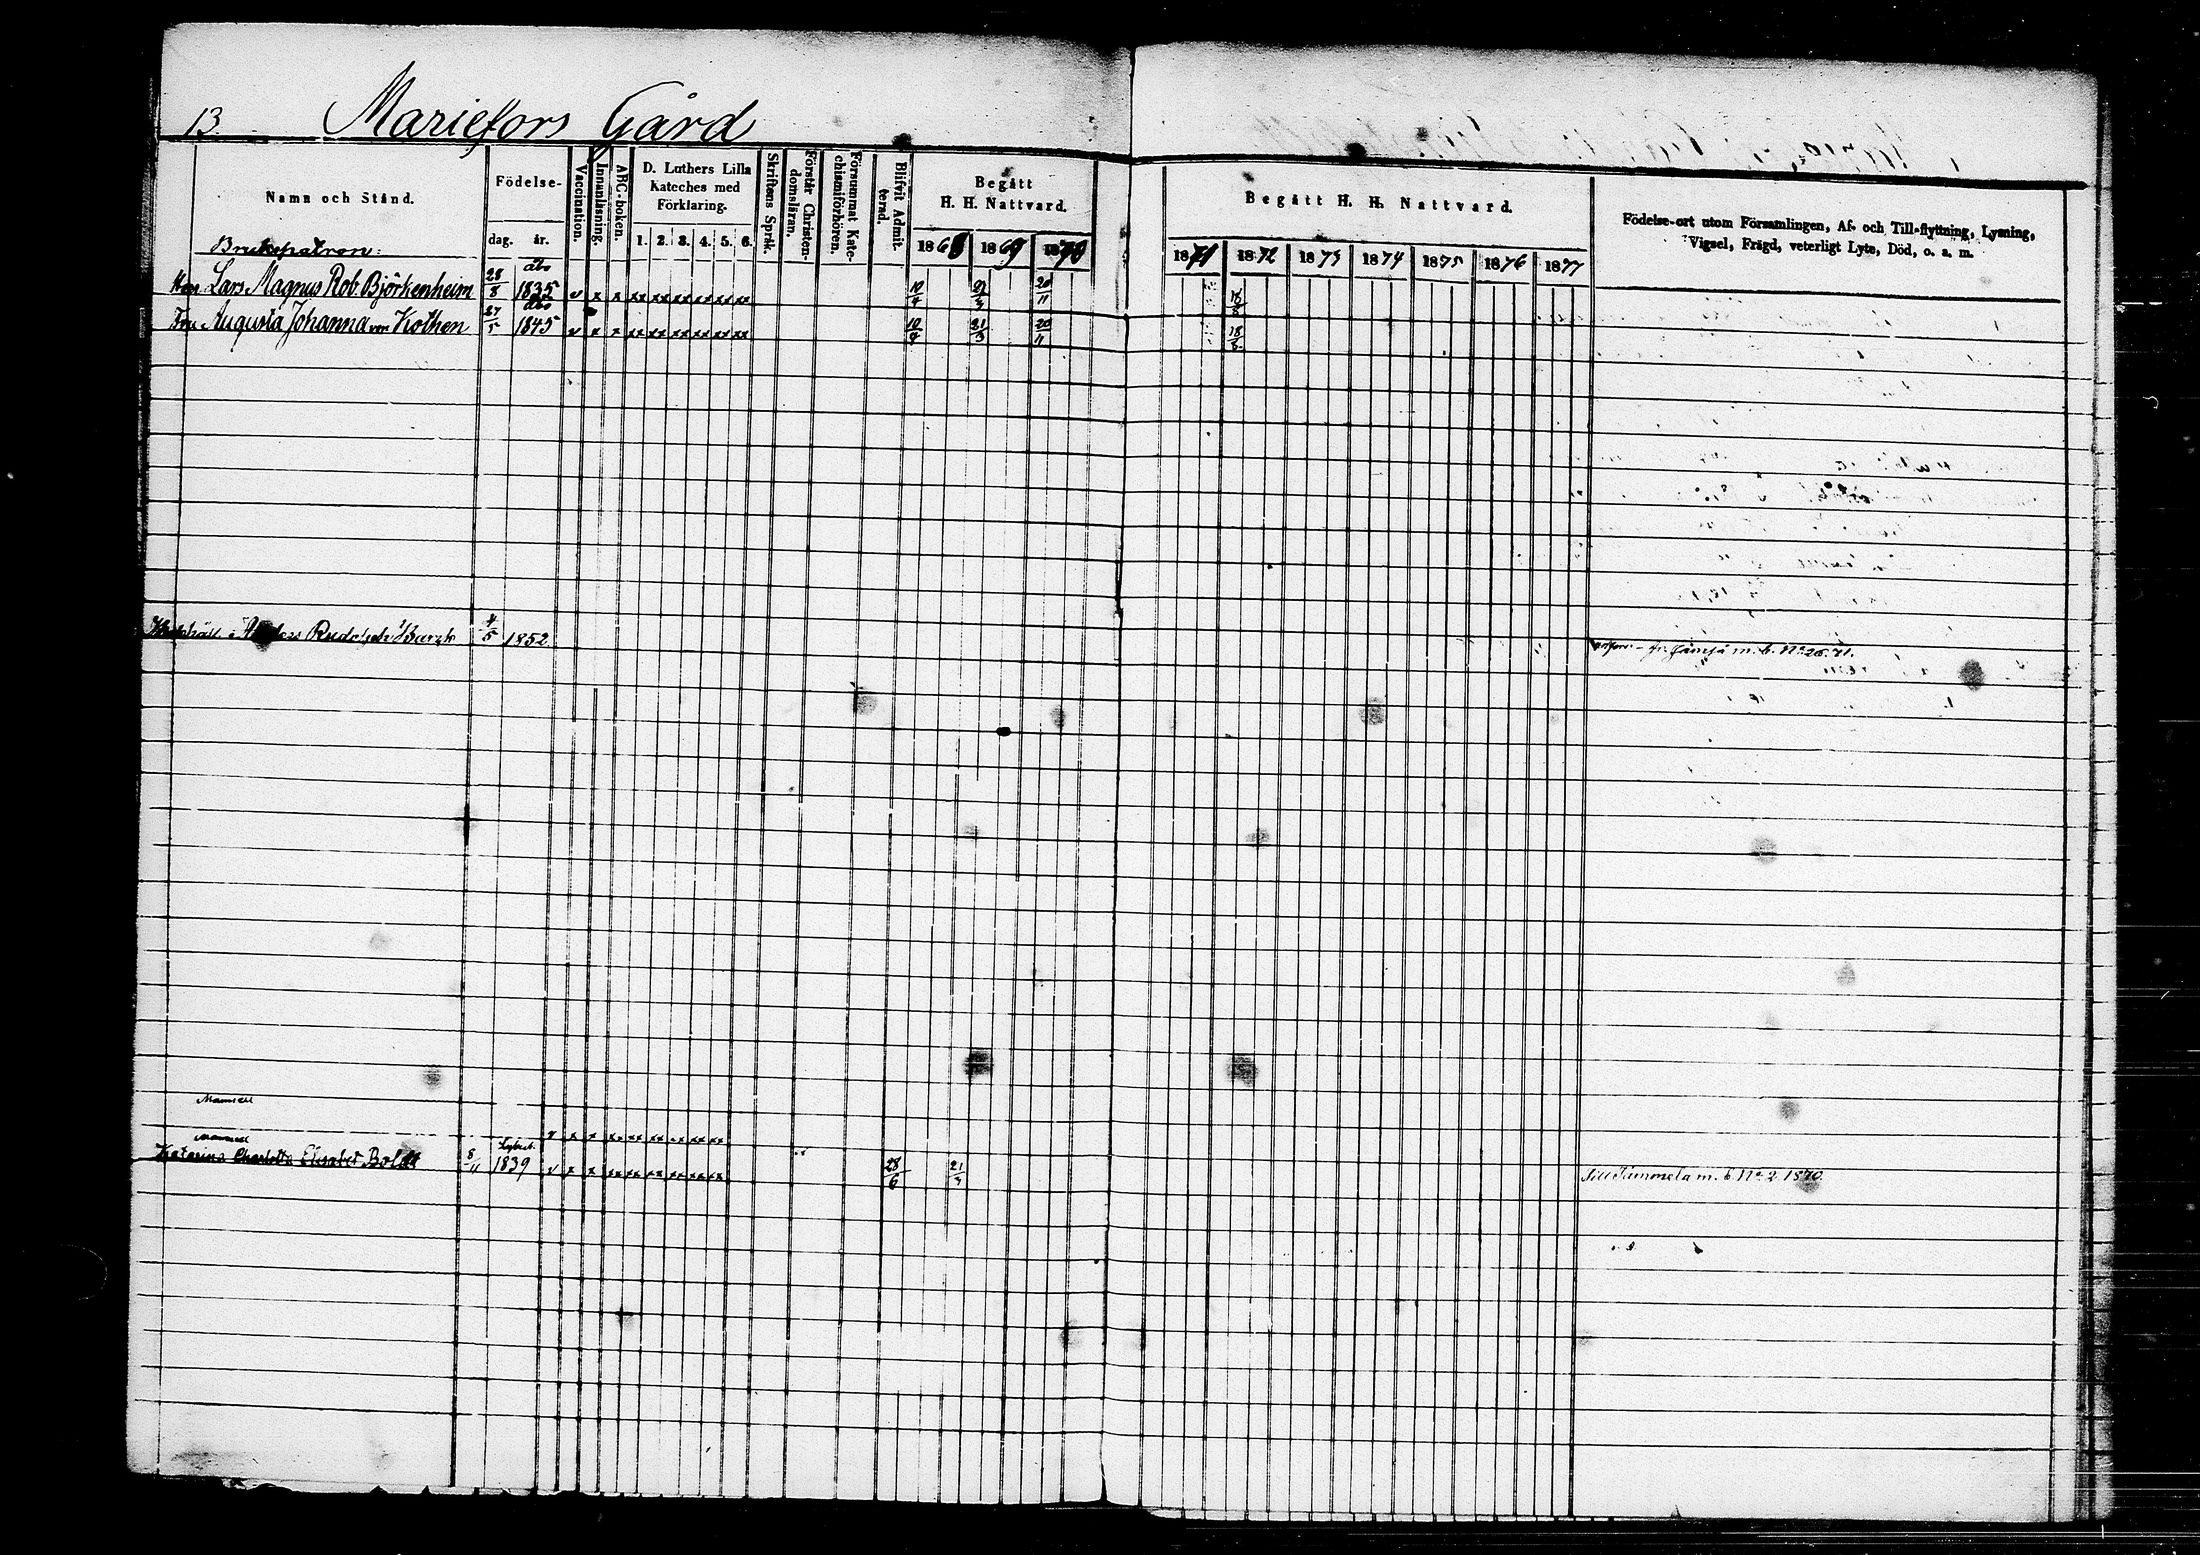 13. Mariefors Gård
Namn och Stånd.
Födelse-
dag. år.
Vaccination.
Innanläsning.
ABC-boken.
D. Luthers Lilla
Kateches med
Förklaring.
1. 2. 3. 4. 5. 6.
Skriftens Språk.
Förstår Christen-
domsläran.
Försummat Kate-
chismiförhören.
Blifvit Admit-
terad.
Begått
H. H. Nattvard.
1868 1869 1870
Begått H. H. Nattvard.
1871 1872 1873 1874 1875 1876 1877
Födelse-ort utom Församlingen, Af- och Till-flyttning, Lysning,
Vigsel, Frägd, veterligt Lyte, Död, o. s. m.
Brukspatron:
Åbo
Herr Lars Magnus Rob. Björkenheim 28/8 1835 v x x xx xx xx xx xx xx 10/4 21/3 20/11 18/8
Åbo
Fru Augusta Johanna von Kothen 27/5 1845 v x x xx xx xx xx xx xx 10/4 21/3 20/11 18/8
Rudolph 4/5 1852. fr. m. b. No 26. 71.
Mamsell
Mamsell
Katarina Charlotta Elisabet Boldt 8/11 1839 v x x xx xx xx xx xx xx 28/6 21/3 Till Tammela m. b. No 2 1870.